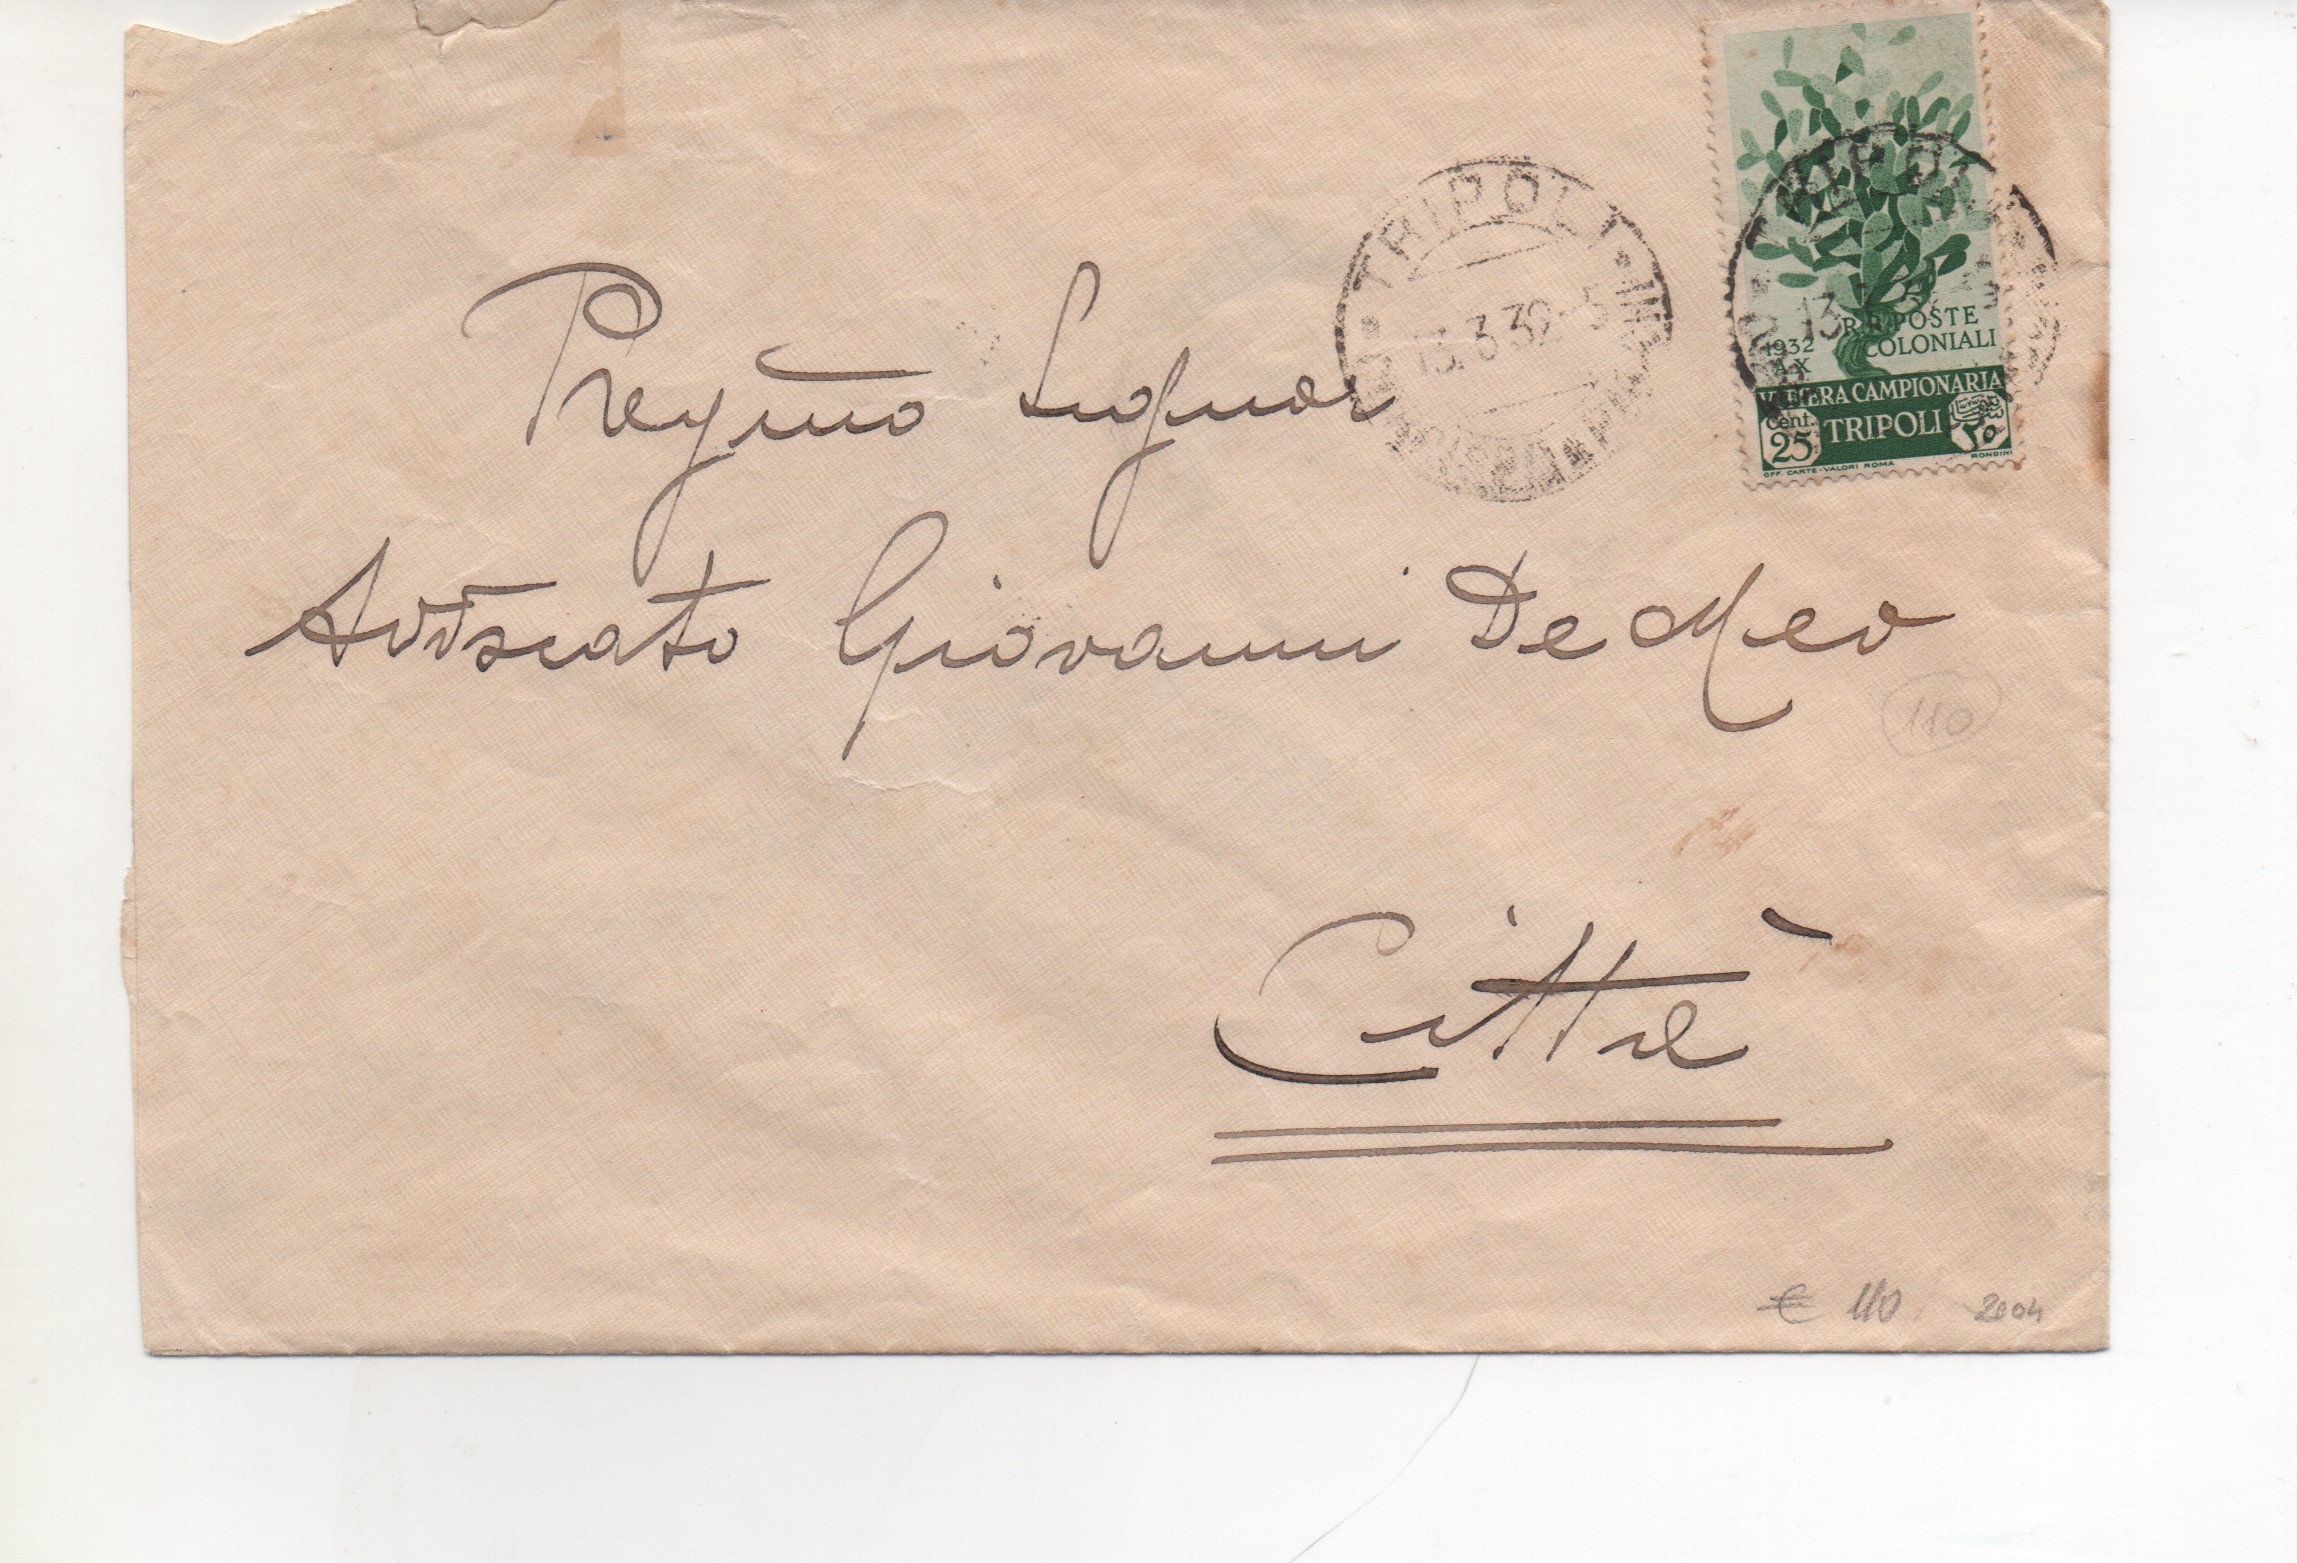 TRIPOLI
13.3.32-5
R.R. POSTE
1932 COLONIALI
A.X
VI FIERA CAMPIONARIA
Cent. 25 TRIPOLI ٢٥
OFF. CARTE-VALORI ROMA RONDINI
TRIPOLI
13
Pregmo Signor
Avvocato Giovanni De Meo
110
Città
€ 110 2004